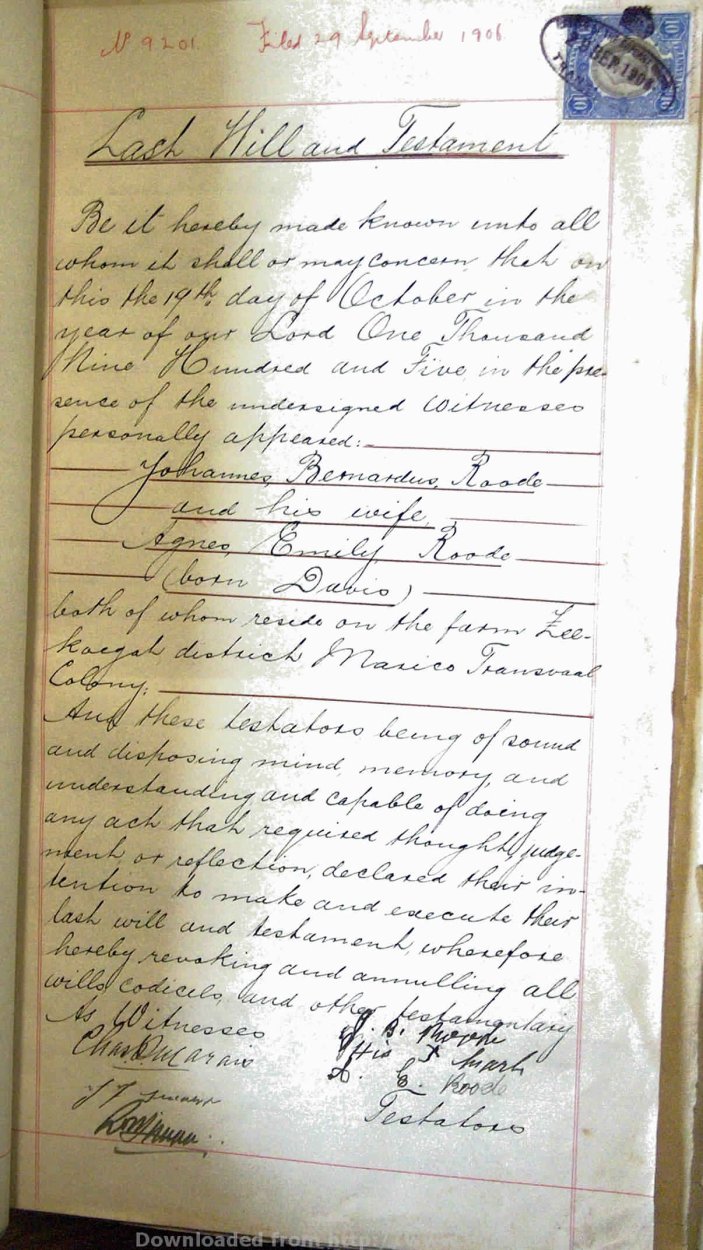 No 9201 Filed 29 September 1906
10 10
SEP 1906
TRANS
Last Will and Testament
Be it hereby made known unto all
whom it shall or may concern that on
this the 19th day of October in the
year of our Lord One Thousand
Nine Hundred and Five in the pre-
sence of the undersigned Witnesses
personally appeared:
Johannes Bernardus Roode
and his wife
Agnes Emily Roode
(born Davis)
both of whom reside on the farm Zee-
koegat district Marico Transvaal
Colony:
And these testators being of sound
and disposing mind, memory, and
understanding and capable of doing
any act that required thought, judge-
ment or reflection, declared their in-
tention to make and execute their
last will and testament, wherefore
hereby revoking and annulling all
wills, codicils, and other testamentary
As Witnesses J. B. Roode
Chas D Marais His + Mark
E. Roode
Testators
Downloaded from http://